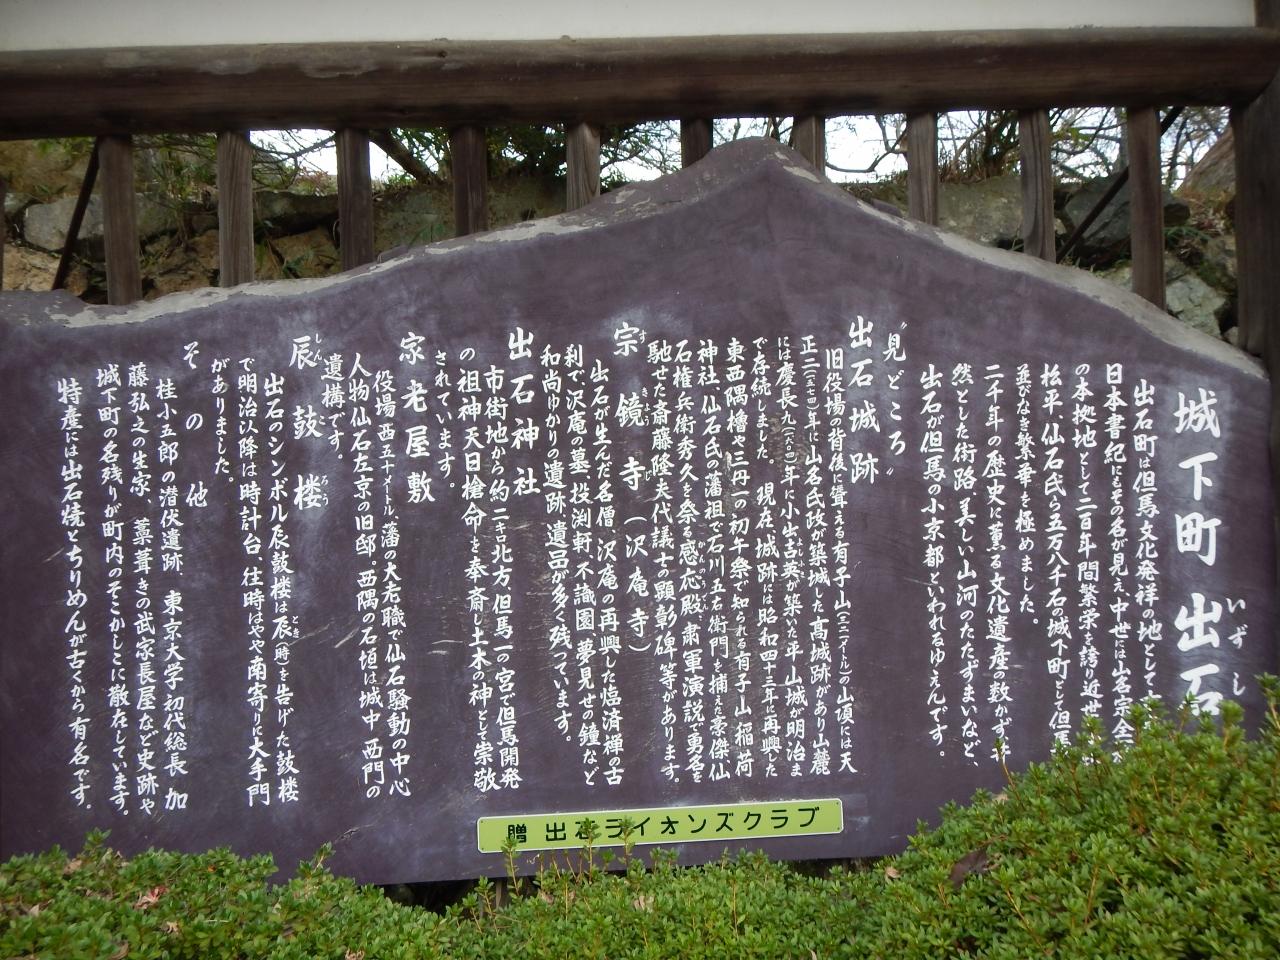 城下町 出石
いずし
出石町は但馬文化発祥の地として
日本書紀にもその名が見え、中世には山名宗全
の本拠地として二百年間繁栄を誇り近世
松平、仙石氏ら五万八千石の城下町として但馬
並びなき繁華を極めました。
二千年の歴史に薫る文化遺産の数かず、
然とした街路、美しい山河のたたずまいなど、
出石が但馬の小京都といわれるゆえんです。
〝見どころ〟
出石城跡
旧役場の背後に聳える有子山(三二一メートル)の山頃には天
正二(一五七四)年に山名氏政が築城した高城跡があり山麓
には慶長九(一六〇四)年に小出吉英が築いた平山城が明治ま
で存続しました 現在城跡には昭和四十三年に再興した
東西隅櫓や三丹一の初午祭で知られる有子山稲荷
神社、仙石氏の藩祖で石川五右衛門を捕えた豪傑仙
石権兵衛秀久を祭る感応殿、粛軍演説で勇名を
馳せた斎藤隆夫代議士の顕彰碑等があります。
宗鏡寺(沢庵寺)
すきょうじ
出石が生んだ名僧、沢庵の再興した臨済禅の古
刹で、沢庵の墓、投渕軒、不識園、夢見せの鐘など
和尚ゆかりの遺跡、遺品が多く残っています。
出石神社
市街地から約二キロ北方、但馬一の宮で但馬開発
の祖神天日槍命を奉斎し土木の神として崇敬
されています。
家老屋敷
役場西五十メートル、藩の大老職で仙石騒動の中心
人物仙石左京の旧邸。西隅の石垣は城中西門の
遺構です。
辰鼓楼
しんころう
出石のシンボル辰鼓楼は辰(時)を告げた鼓楼
で明治以降は時計台、往時はやや南寄りに大手門
がありました。
その他
桂小五郎の潜伏遺跡、東京大学初代総長加
藤弘之の生家、藁葺きの武家長屋など史跡や
城下町の名残りが町内のそこかしこに散在しています。
特産には出石焼とちりめんが古くから有名です。
贈 出石ライオンズクラブ